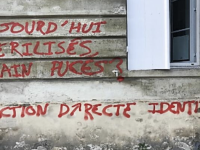 OURD'HUI
ERILISÉS,
AIN PUCÉS?
CTION DIRECTE IDENTI